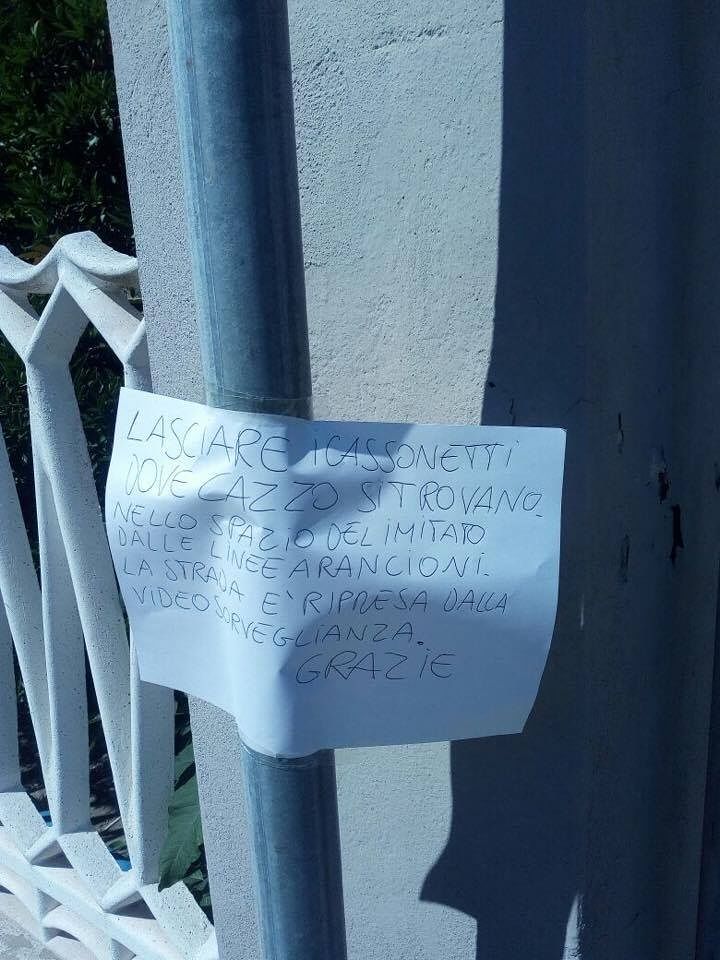 LASCIARE I CASSONETTI
DOVE CAZZO SI TROVANO.
NELLO SPAZIO DELIMITATO
DALLE LINEE ARANCIONI.
LA STRADA E' RIPRESA DALLA
VIDEO SORVEGLIANZA.
GRAZIE